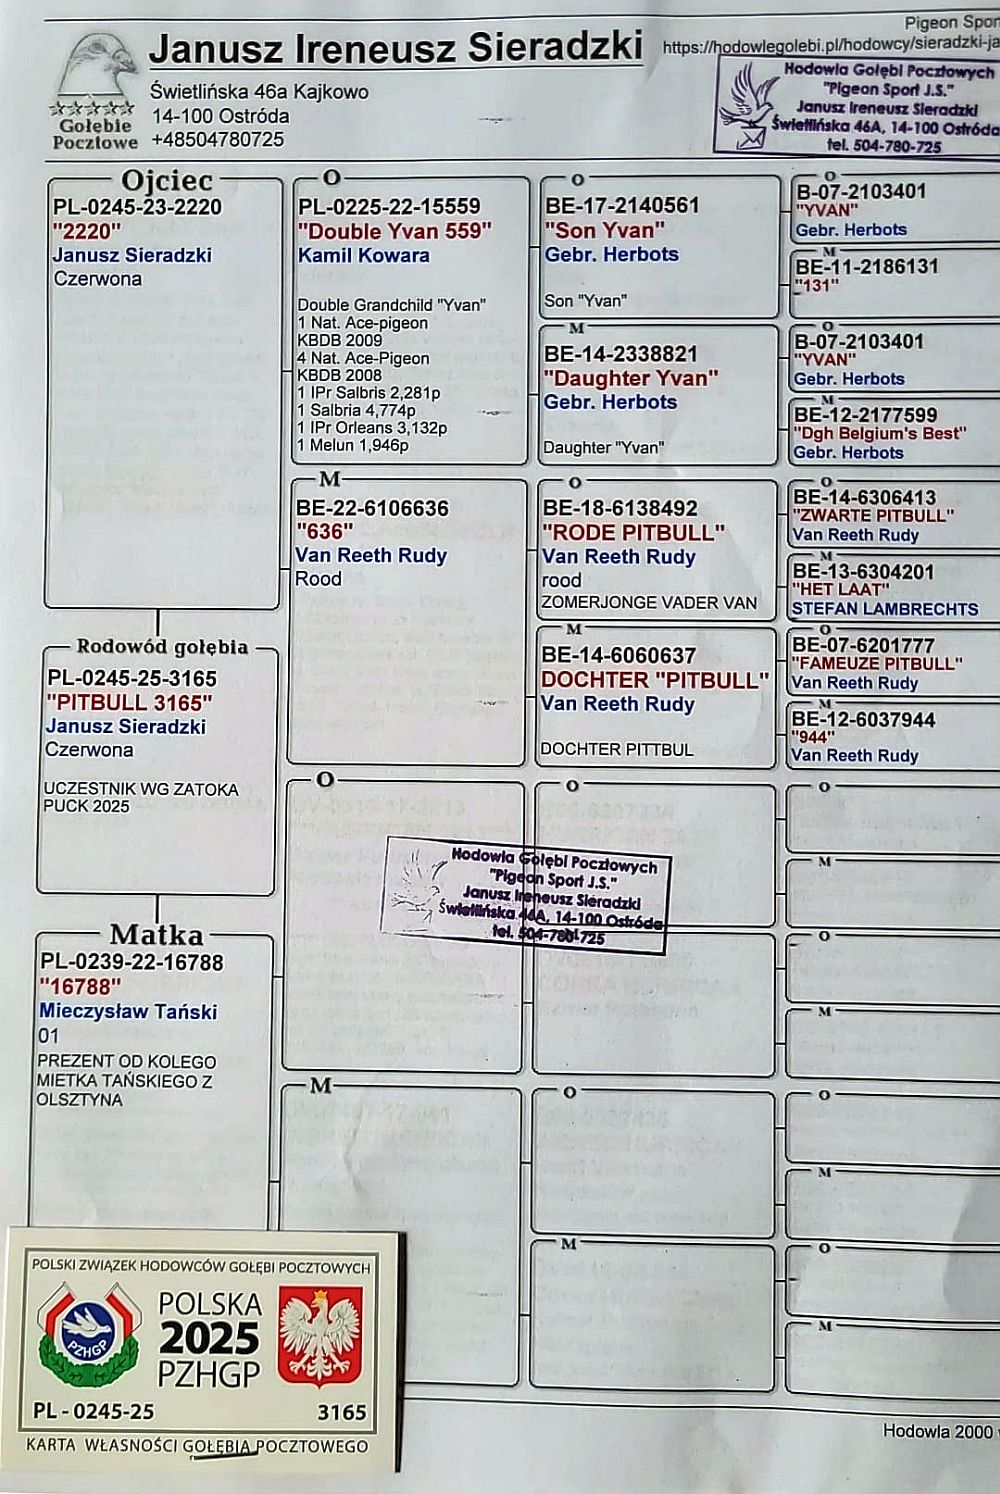 Pigeon Spor
Janusz Ireneusz Sieradzki
https://hodowlegolebi.pl/hodowcy/sieradzki-ja
Gołębie
Pocztowe
Świetlińska 46a Kajkowo
14-100 Ostróda
+48504780725
Hodowla Gołębi Pocztowych
"Pigeon Sport J.S."
Janusz Ireneusz Sieradzki
Świetlińska 46A, 14-100 Ostróda
tel. 504-780-725
Ojciec
PL-0245-23-2220
"2220"
Janusz Sieradzki
Czerwona
O
PL-0225-22-15559
"Double Yvan 559"
Kamil Kowara
Double Grandchild "Yvan"
1 Nat. Ace-pigeon
KBDB 2009
4 Nat. Ace-Pigeon
KBDB 2008
1 IPr Salbris 2,281p
1 Salbria 4,774p
1 IPr Orleans 3,132p
1 Melun 1,946p
O
BE-17-2140561
"Son Yvan"
Gebr. Herbots
Son "Yvan"
O
B-07-2103401
"YVAN"
Gebr. Herbots
M
BE-11-2186131
"131"
M
BE-14-2338821
"Daughter Yvan"
Gebr. Herbots
Daughter "Yvan"
O
B-07-2103401
"YVAN"
Gebr. Herbots
M
BE-12-2177599
"Dgh Belgium's Best"
Gebr. Herbots
M
BE-22-6106636
"636"
Van Reeth Rudy
Rood
O
BE-18-6138492
"RODE PITBULL"
Van Reeth Rudy
rood
ZOMERJONGE VADER VAN
O
BE-14-6306413
"ZWARTE PITBULL"
Van Reeth Rudy
M
BE-13-6304201
"HET LAAT"
STEFAN LAMBRECHTS
M
BE-14-6060637
DOCHTER "PITBULL"
Van Reeth Rudy
DOCHTER PITTBUL
O
BE-07-6201777
"FAMEUZE PITBULL"
Van Reeth Rudy
M
BE-12-6037944
"944"
Van Reeth Rudy
Rodowód gołębia
PL-0245-25-3165
"PITBULL 3165"
Janusz Sieradzki
Czerwona
UCZESTNIK WG ZATOKA
PUCK 2025
O
O
O
M
Hodowla Gołębi Pocztowych
"Pigeon Sport J.S."
Janusz Ireneusz Sieradzki
Świetlińska 46A, 14-100 Ostróda
tel. 504-780-725
Matka
PL-0239-22-16788
"16788"
Mieczysław Tański
01
PREZENT OD KOLEGO
MIETKA TAŃSKIEGO Z
OLSZTYNA
M
O
M
M
O
O
M
M
O
M
POLSKI ZWIĄZEK HODOWCÓW GOŁĘBI POCZTOWYCH
PZHGP
POLSKA
2025
PZHGP
PL - 0245-25
3165
KARTA WŁASNOŚCI GOŁĘBIA POCZTOWEGO
Hodowla 2000